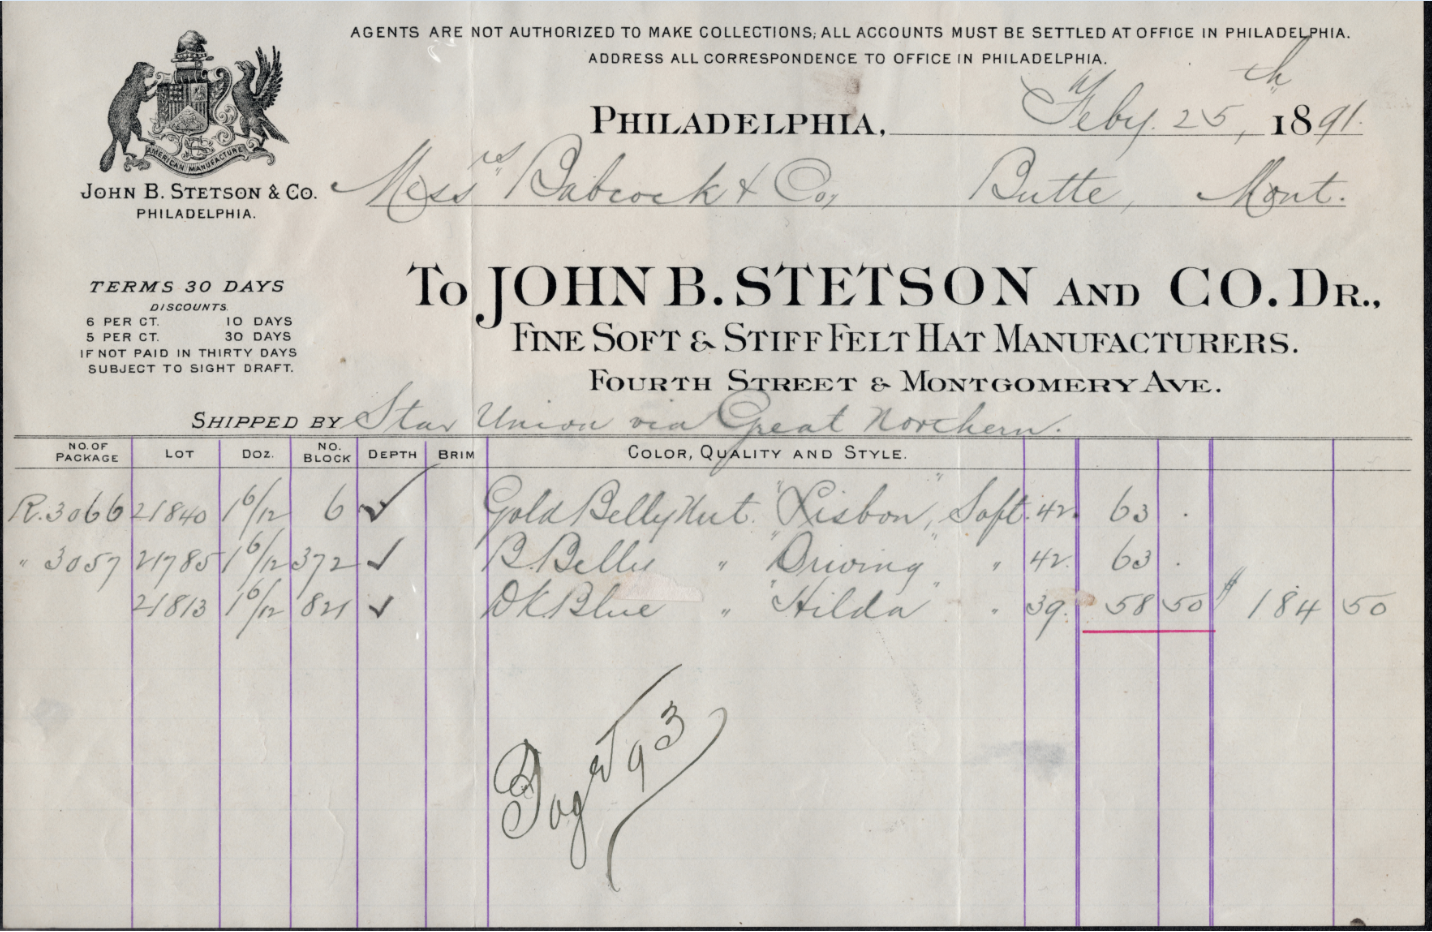 AGENTS ARE NOT AUTHORIZED TO MAKE COLLECTIONS; ALL ACCOUNTS MUST BE SETTLED AT OFFICE IN PHILADELPHIA.
ADDRESS ALL CORRESPONDENCE TO OFFICE IN PHILADELPHIA.
AMERICAN MANUFACTURE
JOHN B. STETSON & CO.
PHILADELPHIA.
PHILADELPHIA, Feby. 25th, 1891.
Messrs Babcock & Co, Butte, Mont.
TERMS 30 DAYS
DISCOUNTS.
6 PER CT. 10 DAYS
5 PER CT. 30 DAYS
IF NOT PAID IN THIRTY DAYS
SUBJECT TO SIGHT DRAFT.
TO JOHN B. STETSON AND CO. DR.,
FINE SOFT & STIFF FELT HAT MANUFACTURERS.
FOURTH STREET & MONTGOMERY AVE.
SHIPPED BY Star Union via Great Northern.
NO. OF PACKAGE LOT DOZ. NO. BLOCK DEPTH BRIM COLOR, QUALITY AND STYLE.
R. 3066 21840 1 6/12 6 ✓ Gold Belly Nut. "Lisbon", Soft. 42. 63 .
" 3057 21785 1 6/12 372 ✓ B. Belly " "Driving" " 42. 63 .
21813 1 6/12 821 ✓ DK Blue " "Hilda" " 39. 58 50 $ 184 50
93